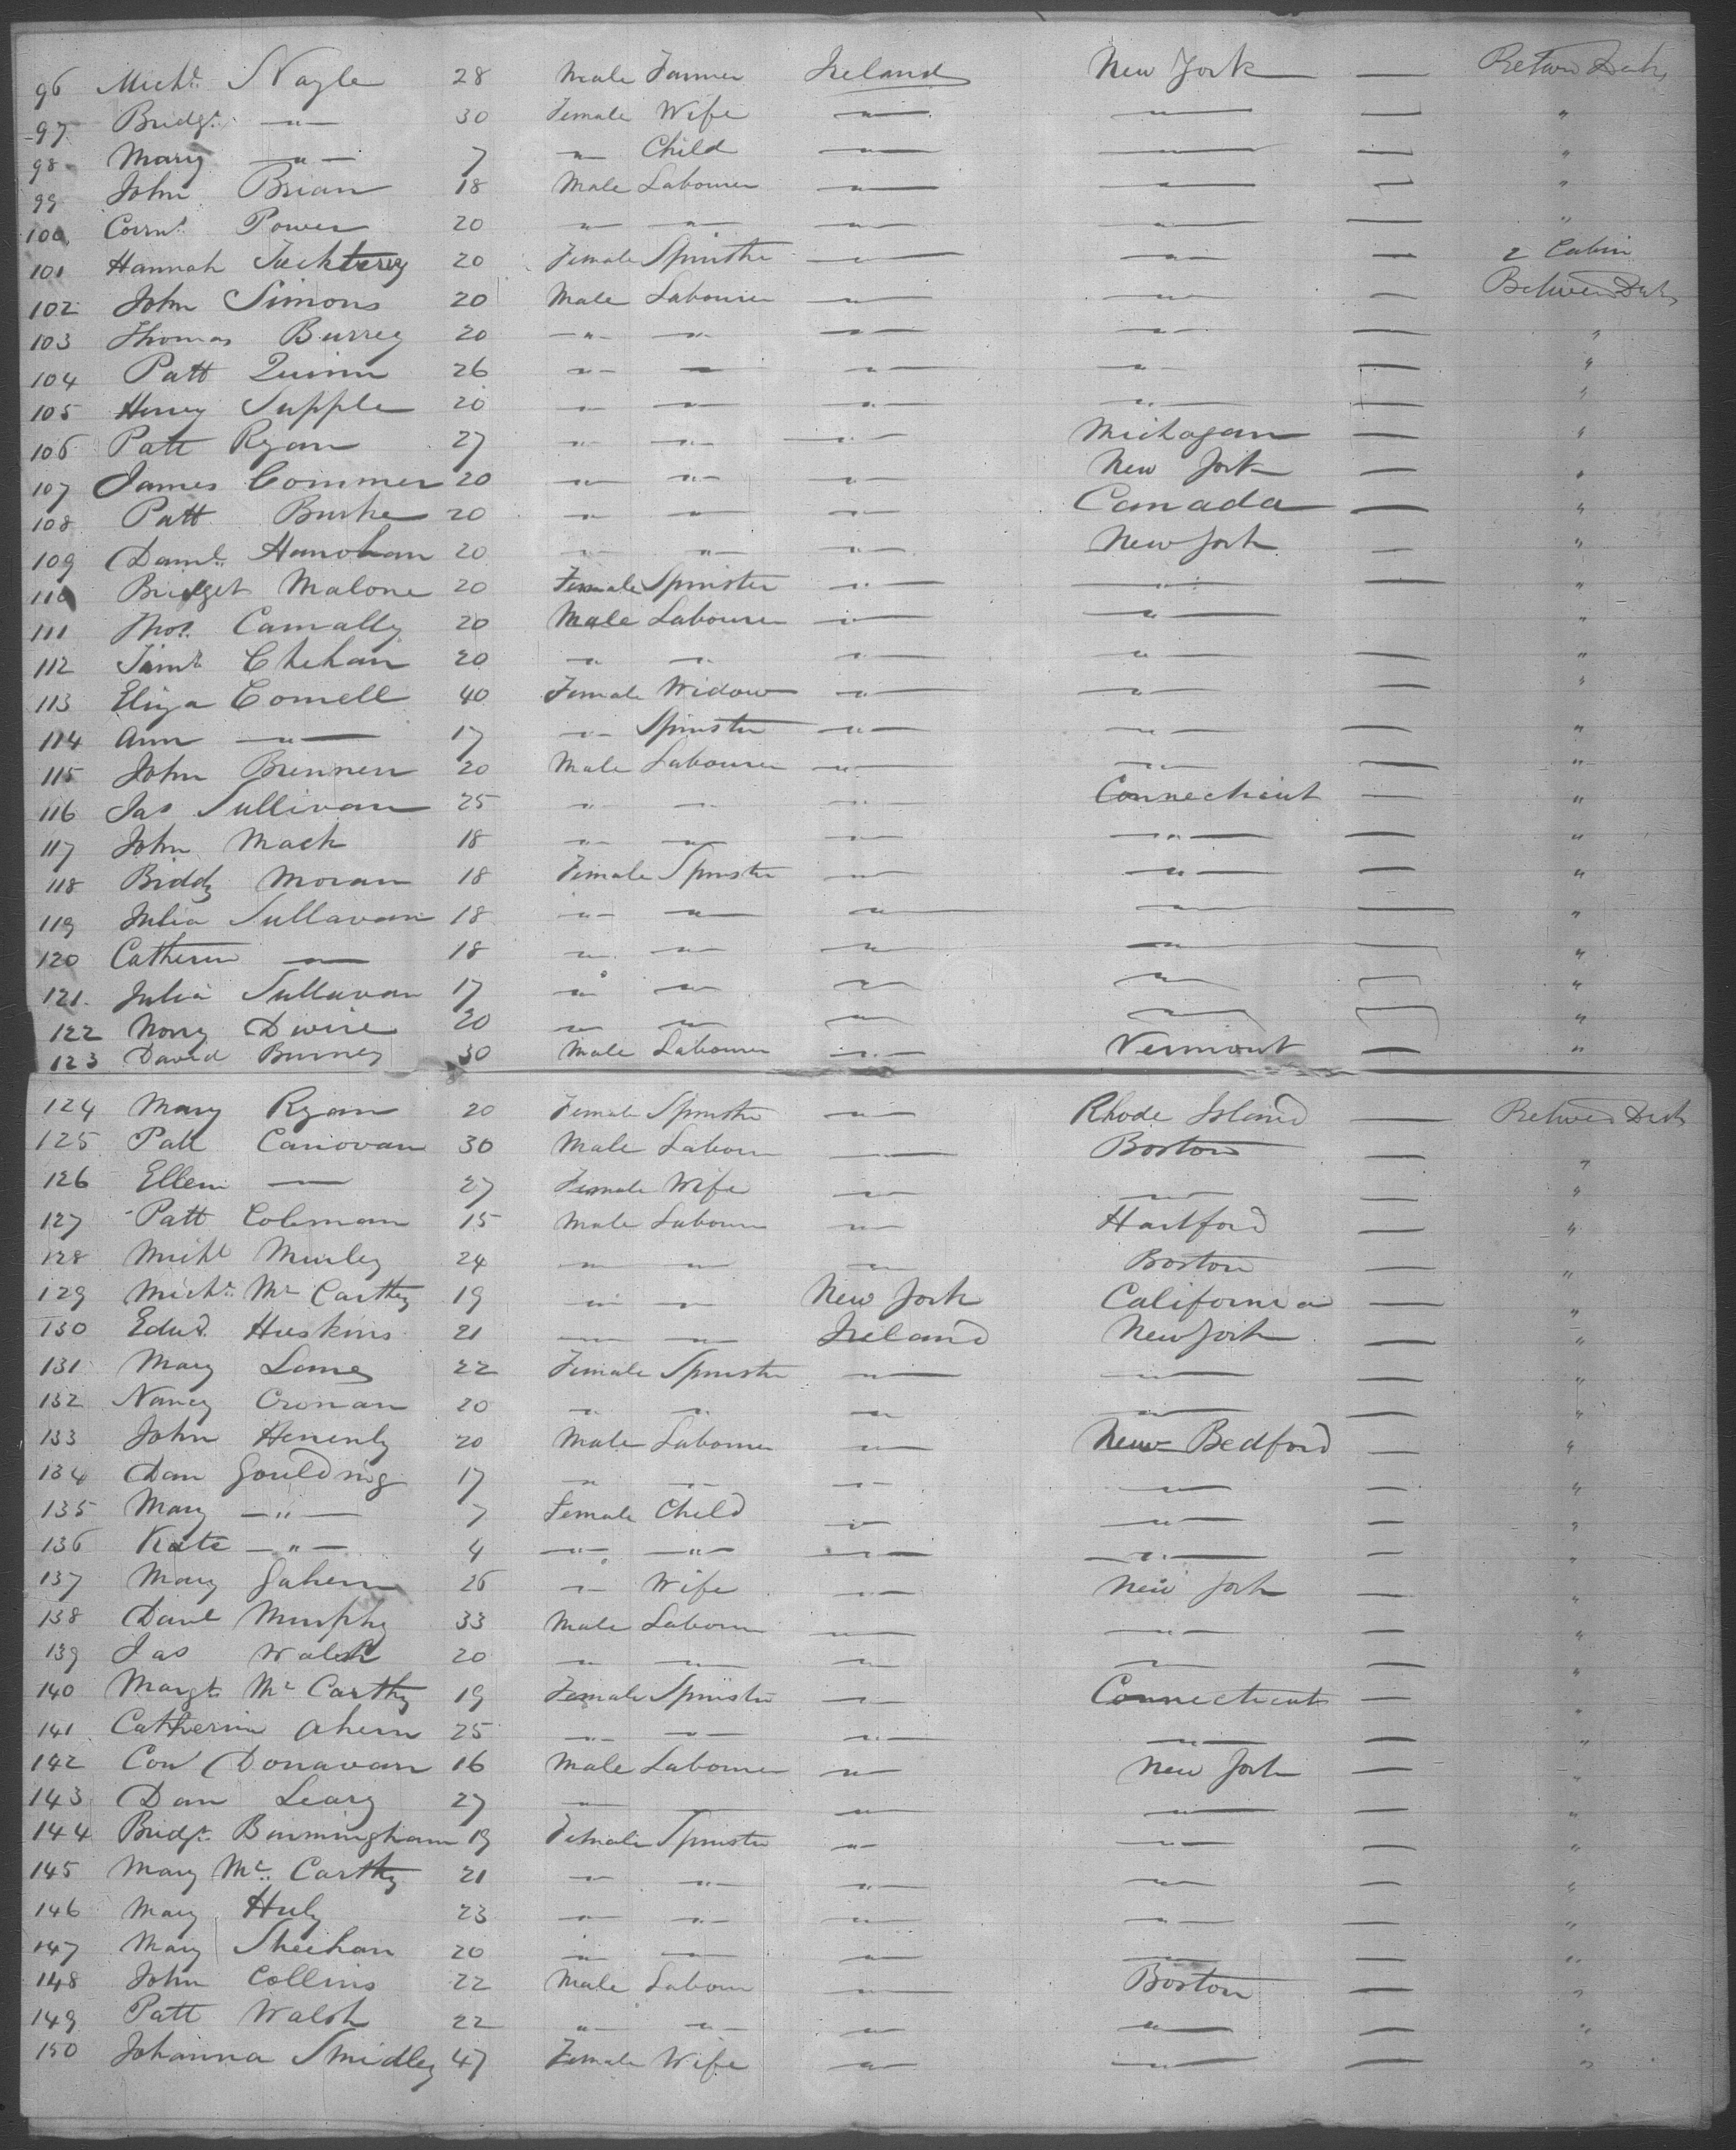 96 Michl. Nagle 28 Male Farmer Ireland New York — Betwen Decks
97 Bridgt. —"— 30 Female Wife —"— — — "
98 Mary —"— 7 —"— Child —"— — — "
99 John Brian 18 Male Labourer —"— —"— — "
100 Corns. Power 20 —"— —"— —"— —"— — "
101 Hannah 20 Female Spinster —"— —"— — 2 Cabin
102 John Simons 20 Male Labourer —"— —"— — Between Decks
103 Thomas Burrey 20 —"— —"— —"— —"— — "
104 Patt Quinn 26 —"— —"— —"— —"— — "
105 Henry Supple 20 —"— —"— —"— —"— — "
106 Patt Ryan 27 —"— —"— —"— Michagan — "
107 James Commer 20 —"— —"— —"— New York — "
108 Patt Burke 20 —"— —"— —"— Canada — "
109 Danl. Hanohan 20 —"— —"— —"— New York — "
110 Bridget Malone 20 Female Spinster —"— —"— — "
111 Thos. Cannally 20 Male Labourer —"— —"— — "
112 Timt Chehan 20 —"— —"— —"— —"— — "
113 Eliza Connell 40 Female Widow —"— —"— — "
114 Ann —"— 17 —"— Spinster —"— —"— — "
115 John Brennen 20 Male Labourer —"— —"— — "
116 Jas Sullivan 25 —"— —"— —"— Connecticut — "
117 John Mack 18 —"— —"— —"— —"— — "
118 Biddy Moran 18 Female Spinster —"— —"— — "
119 Julia Sullavan 18 —"— —"— —"— —"— — "
120 Catherin —"— 18 —"— —"— —"— —"— — "
121 Julia Sullavan 17 —"— —"— —"— —"— — "
122 Nory Dwire 20 —"— —"— —"— —"— — "
123 David Burney 30 Male Labourer —"— Vermont — "
124 Mary Ryan 20 Female Spinster —"— Rhode Island — Betwen Decks
125 Patt Canovan 30 Male Labourer —"— Boston — "
126 Ellen —"— 27 Female Wife —"— —"— — "
127 Patt Coleman 15 Male Labourer —"— Hartford — "
128 Michl Murley 24 —"— —"— —"— Boston — "
129 Michl. Mc Carthy 19 —"— —"— New York California — "
130 Edwd. Huskins 21 —"— —"— Ireland New York — "
131 Mary Laney 22 Female Spinster —"— —"— — "
132 Nancy Cronan 20 —"— —"— —"— —"— — "
133 John Henenly 20 Male Labourer —"— New Bedford — "
134 Dan Goulding 17 —"— —"— —"— —"— — "
135 Mary —"— 7 Female Child —"— —"— — "
136 Kate —"— 4 —"— —"— —"— —"— — "
137 Mary Gahern 26 —"— Wife —"— New York — "
138 Danl Murphy 33 Male Labourer —"— —"— — "
139 Jas Walsh 20 —"— —"— —"— —"— — "
140 Margt. Mc Carthy 19 Female Spinster —"— Connecticut — "
141 Catherin Ahern 25 —"— —"— —"— —"— — "
142 Con Donavan 16 Male Labourer —"— New York — "
143 Dan Leary 27 —"— — —"— —"— — "
144 Bridgt. Burmingham 19 Female Spinster —"— —"— — "
145 Mary Mc. Carthy 21 —"— —"— —"— —"— — "
146 Mary Huly 23 —"— —"— —"— —"— — "
147 Mary Sheehan 20 —"— —"— —"— —"— — "
148 John Collins 22 Male Labour —"— Boston — "
149 Patt Walsh 22 —"— —"— —"— —"— — "
150 Johanna Smidley 47 Female Wife —"— —"— — "